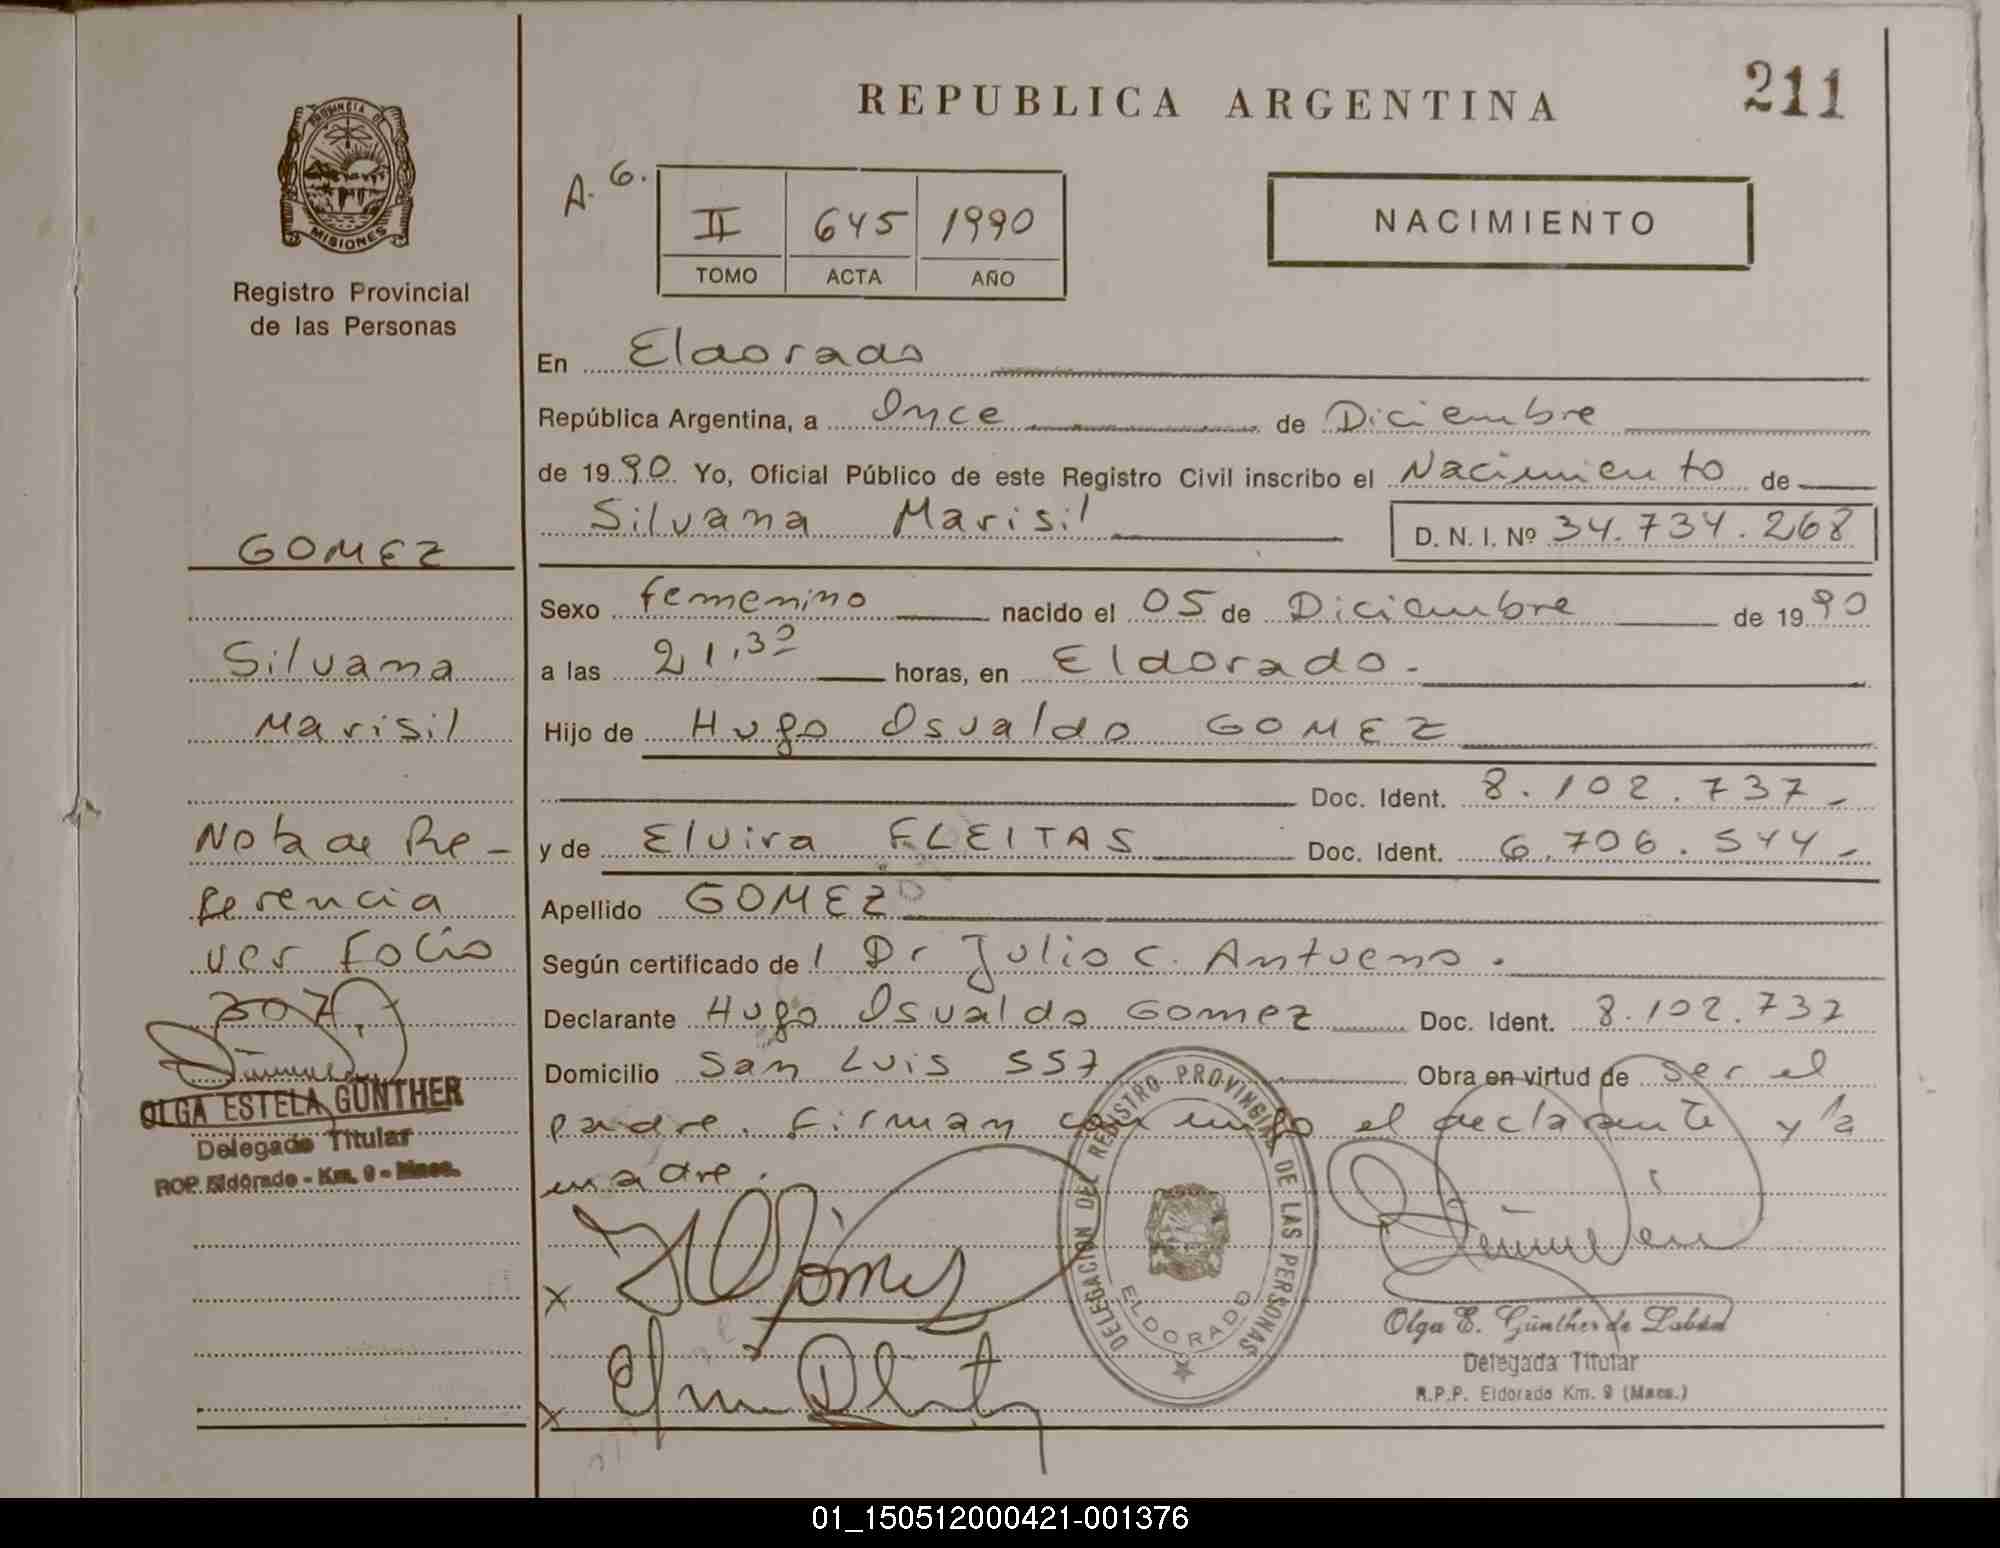 REPUBLICA ARGENTINA
211
PROVINCIA DE
MISIONES
Registro Provincial
de las Personas
A. G.
II 645 1990
TOMO ACTA AÑO
NACIMIENTO
En Eldorado
República Argentina, a Once de Diciembre
de 1990 Yo, Oficial Público de este Registro Civil inscribo el Nacimiento de
Silvana Marisil D. N. I. Nº 34.734.268
GOMEZ
Sexo femenino nacido el 05 de Diciembre de 1990
Silvana
a las 21,30 horas, en Eldorado.
Marisil
Hijo de Hugo Osvaldo GOMEZ
Doc. Ident. 8.102.737-
Nota de Re-
y de Elvira FLEITAS Doc. Ident. 6.706.544-
ferencia
Apellido GOMEZ
ver Folio
Según certificado de l Dr Julio C. Antueno.
307.
Declarante Hugo Osvaldo Gomez Doc. Ident. 8.102.737
Domicilio San Luis 557 Obra en virtud de ser el
padre. Firman conmigo el declarante y la
madre.
OLGA ESTELA GÜNTHER
Delegado Titular
RQP. Eldorado - Km. 9 - Mnes.
DELEGACION DEL REGISTRO PROVINCIAL DE LAS PERSONAS
ELDORADO
x
x
Olga E. Günther de Labán
Delegada Titular
R.P.P. Eldorado Km. 9 (Mnes.)
01_150512000421-001376